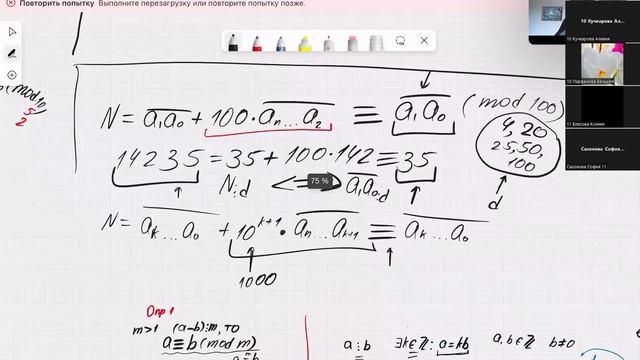 Повторить попытку Выполните перезагрузку или повторите попытку позже.
10 Кучкарова Ал...
10 Кучкарова Алевия
10 Парфенова Валерия
11 Власова Ксения
Сазонова София 11
Сазонова София 11
(mod 10)
5
2
N = a₁a₀ + 100·aₙ...a₂ ≡ a₁a₀ (mod 100)
4, 20
25, 50,
100
14235 = 35 + 100·142 ≡ 35
N⋮d ⟺ a₁a₀⋮d
75 %
d
N = aₖ...a₀ + 10ᵏ⁺¹·aₙ...aₖ₊₁ ≡ aₖ...a₀
1000
Опр 1
m>1 (a-b)⋮m, то
a≡b (mod m)
a⋮b ∃k∈ℤ: a=kb a,b∈ℤ b≠0